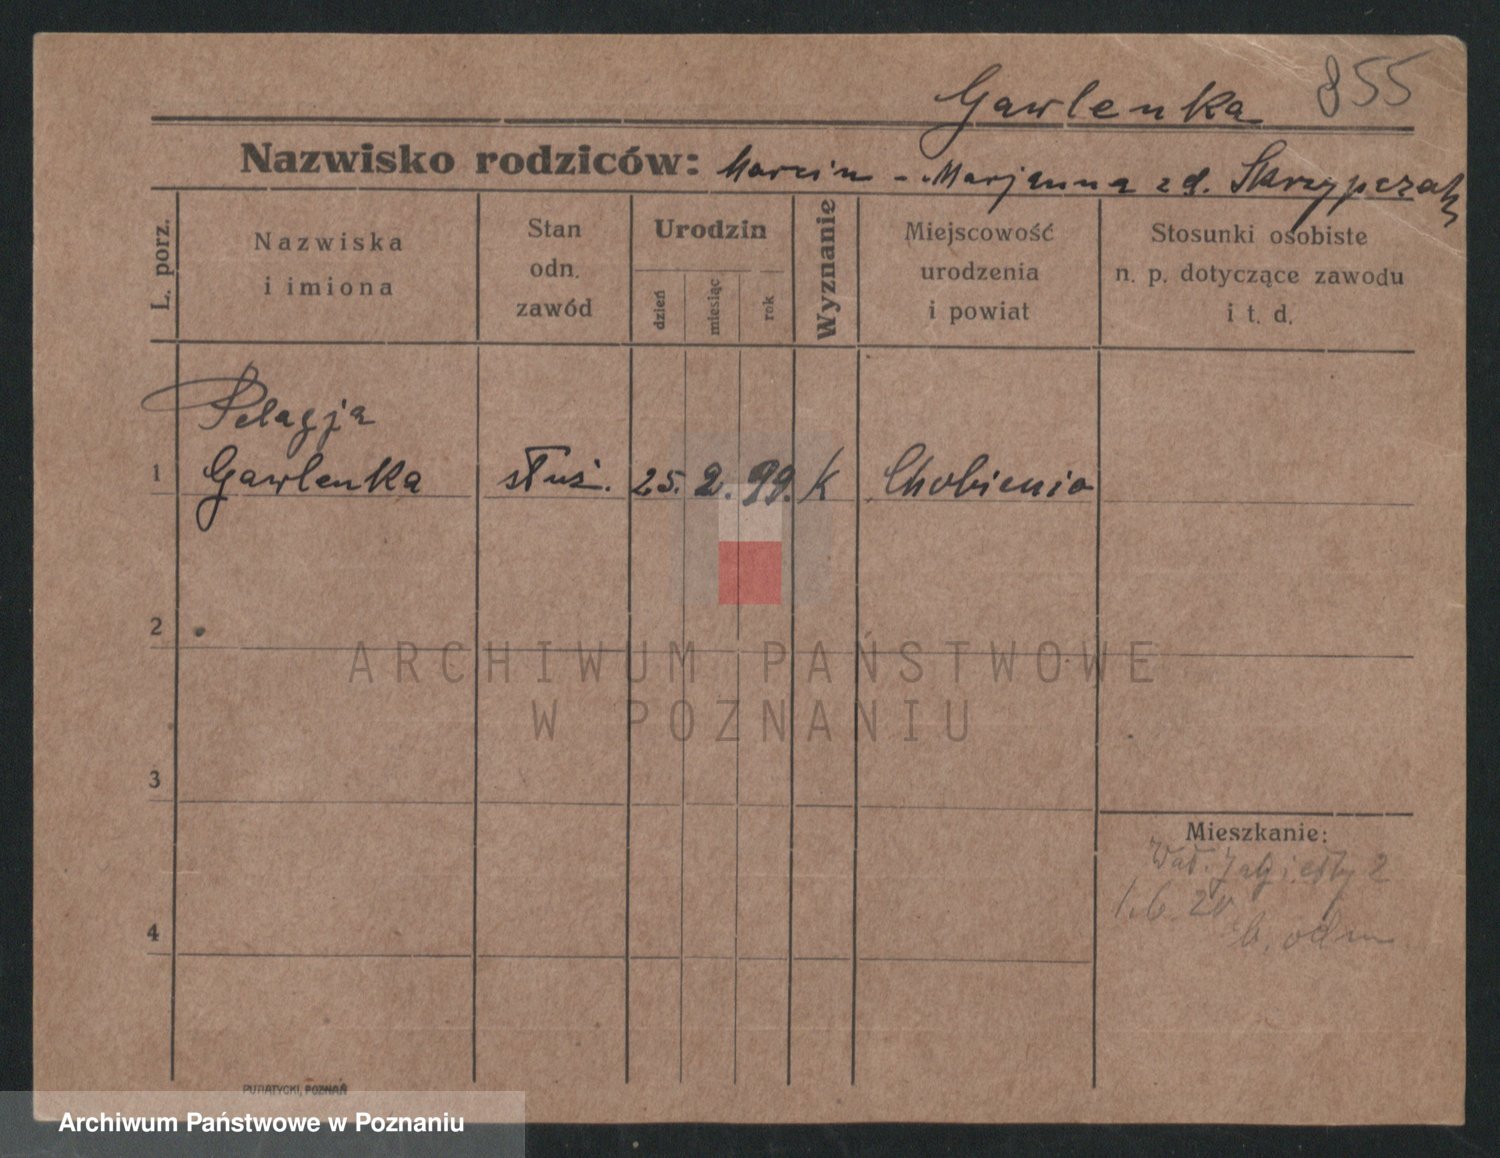 Gawlenka 855
Nazwisko rodziców: Marcin - Marjanna zd. Skrzypczak
L. porz.
Nazwiska
i imiona
Stan
odn.
zawód
Urodzin
dzień
miesiąc
rok
Wyznanie
Miejscowość
urodzenia
i powiat
Stosunki osobiste
n. p. dotyczące zawodu
i t. d.
Pelagja
1 Gawlenka służ. 25. 2. 99. k Chobienia
2
ARCHIWUM PAŃSTWOWE
W POZNANIU
3
Mieszkanie:
Wał. Jagiełły 2
1.6.20
b. odm
4
PUTIATYCKI, POZNAŃ
Archiwum Państwowe w Poznaniu